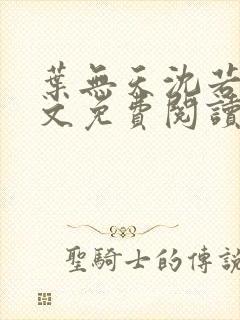 葉無天沈若
文免費閱讀
聖騎士的傳說